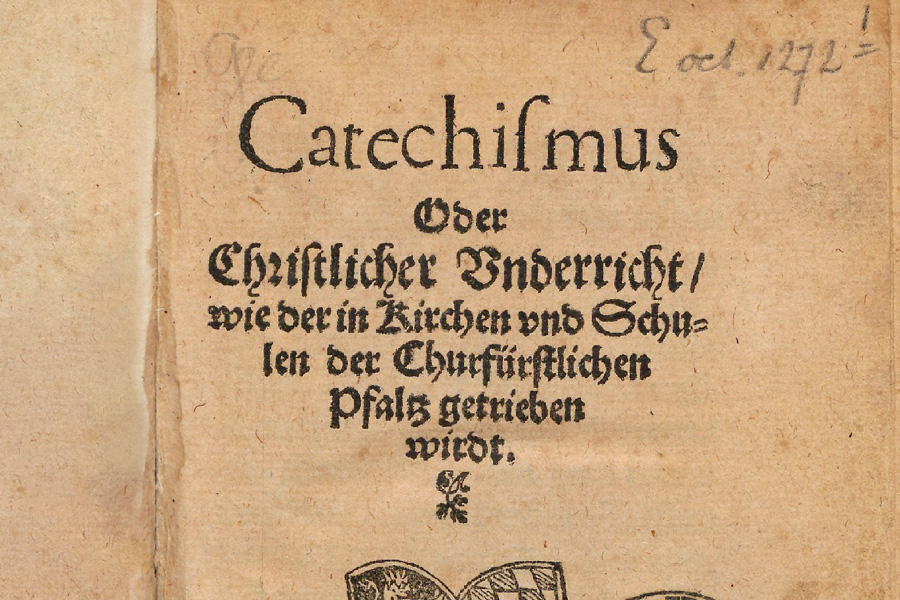 E oct. 1272 1/=
Catechiſmus
Oder
Chriſtlicher Vnderricht/
wie der in Kirchen vnd Schu⸗
len der Churfürſtlichen
Pfaltz getrieben
wirdt.